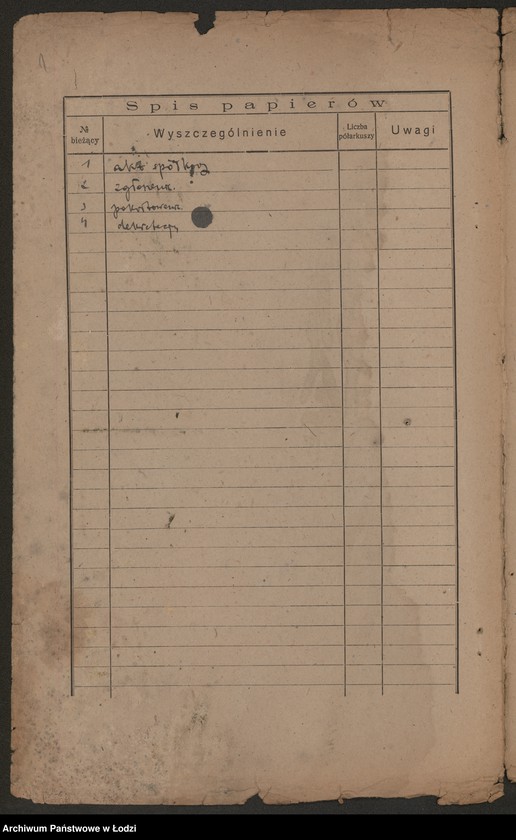 Spis papierów
№ bieżący
Wyszczególnienie
Liczba półarkuszy
Uwagi
1 akt spółkowy
2 zgłoszenie.
3
4
Archiwum Państwowe w Łodzi